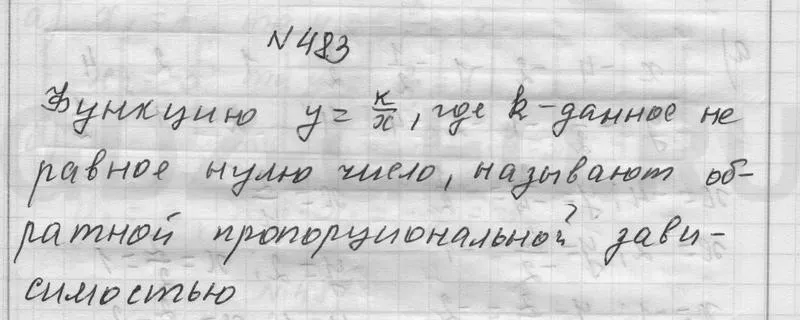 N 483
Функцию y = k/x, где k - данное не
равное нулю число, называют об-
ратной пропорциональной зави-
симостью